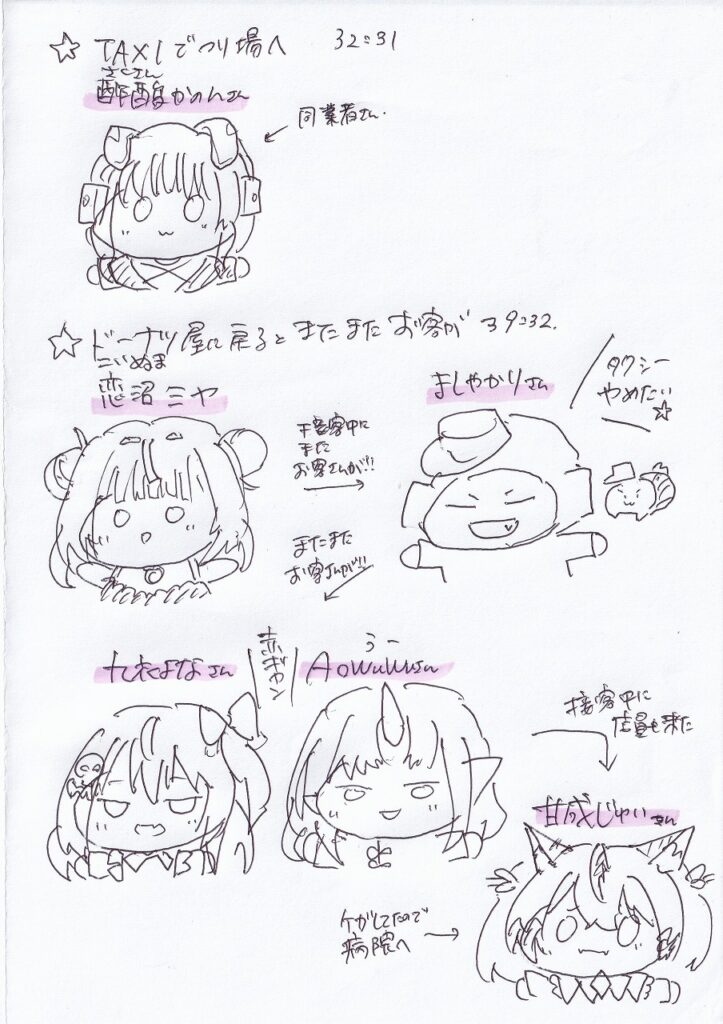 ☆ TAXIでつり場へ 32:31
さくさん
酢酸かのんさん
同業者さん.
☆ ドーナツ屋に戻るとまたまたお客が 39:32.
こいぬま
恋沼ミヤ
ましゃかりさん
タクシー
やめたい
☆
接客中に
また
お客さんが!!
またまた
お客さんが!!
よなさん
赤ギャン
うー
Aowuwuさん
接客中に
店員も来た
甘成じゅいさん
ケガしてたので
病院へ